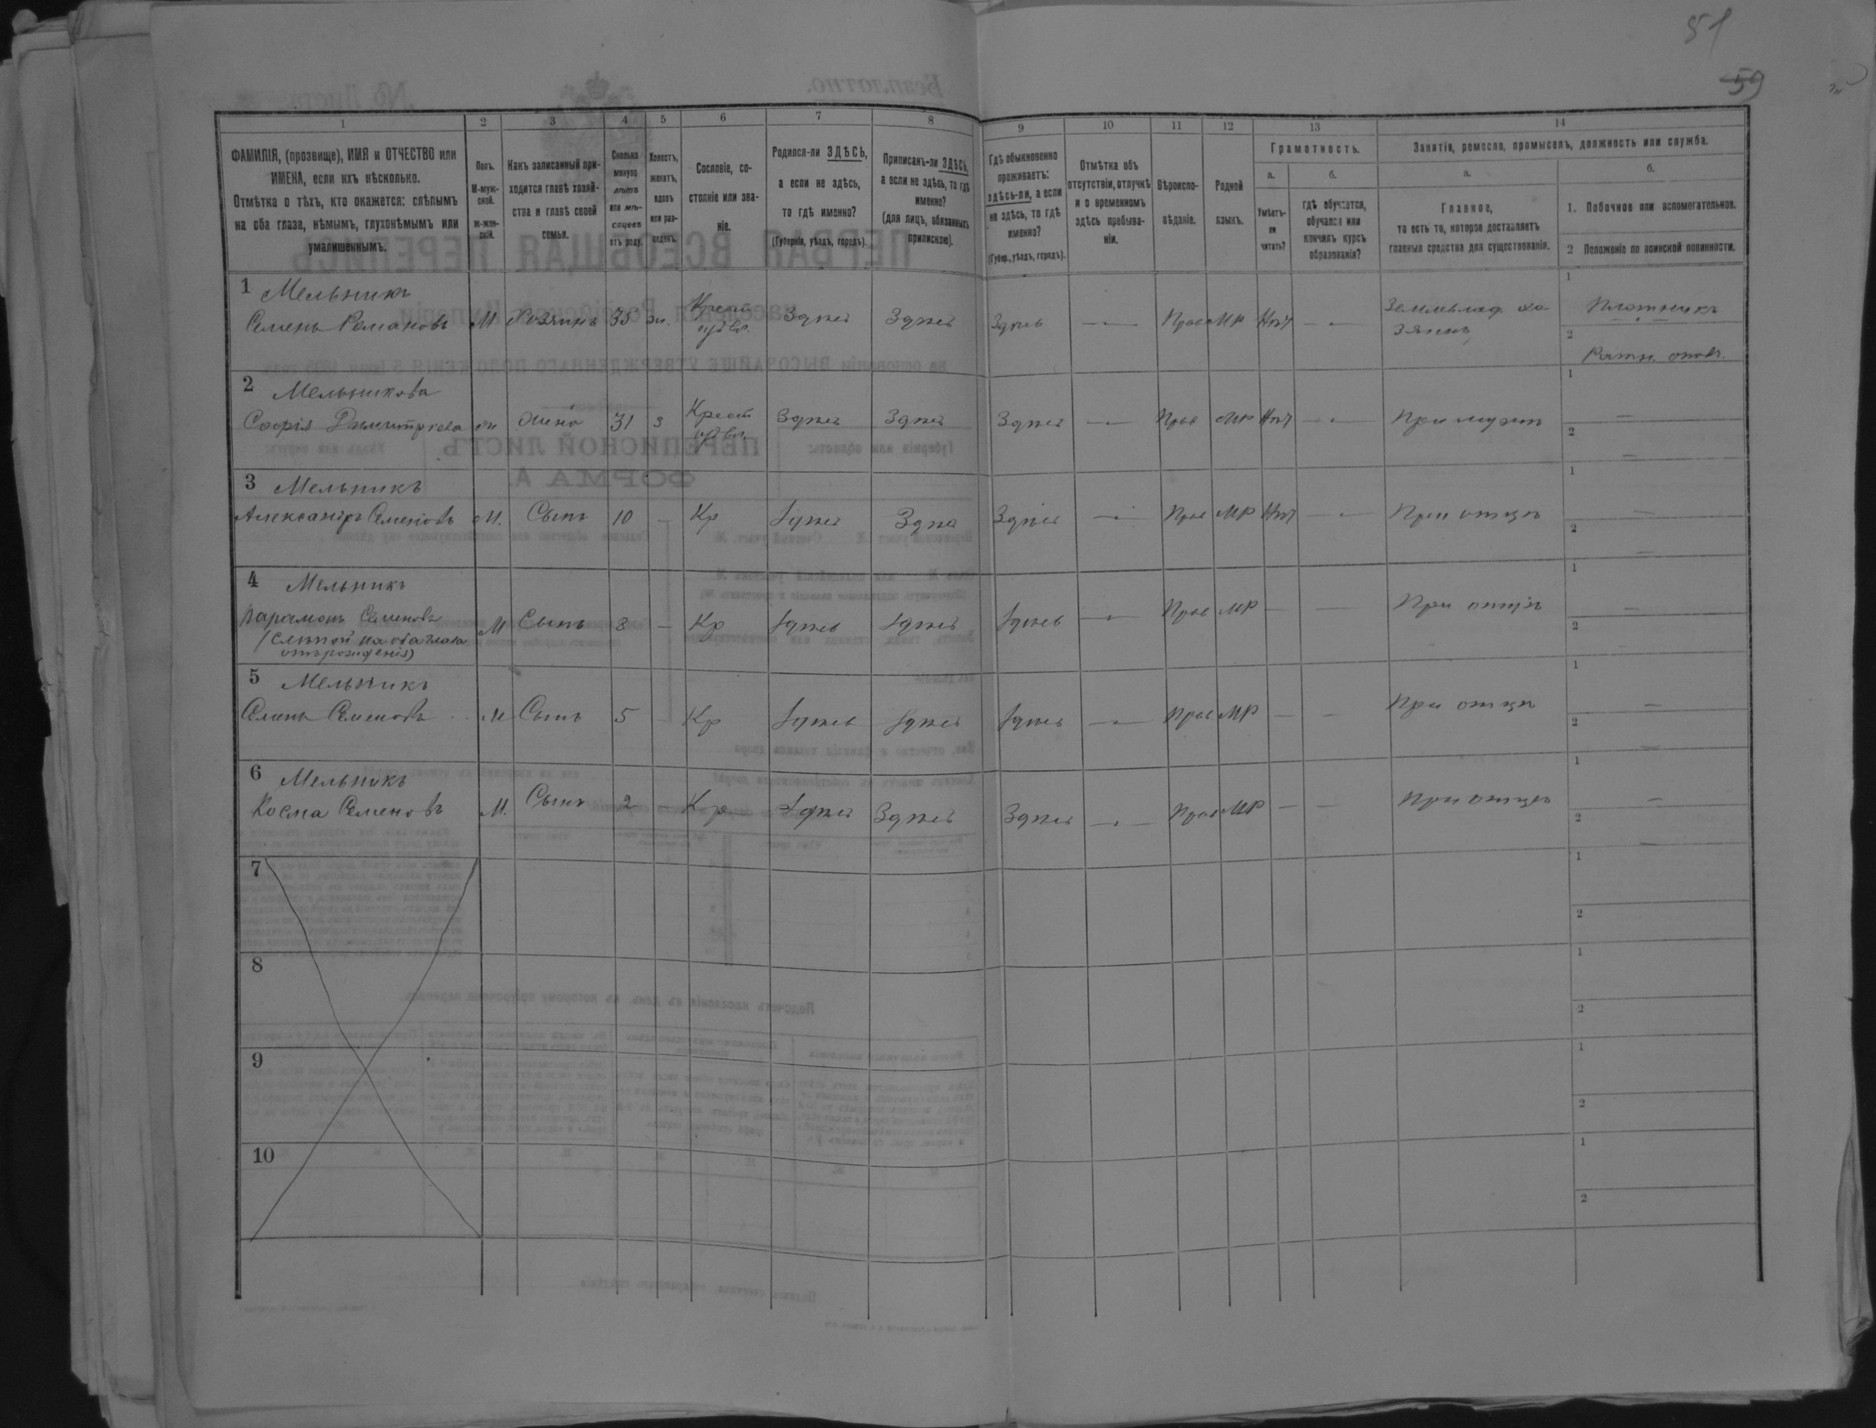 51
59
1 2 3 4 5 6 7 8 9 10 11 12 13 14
ФАМИЛІЯ, (прозвище), ИМЯ и ОТЧЕСТВО или
ИМЕНА, если ихъ нѣсколько.
Отмѣтка о тѣхъ, кто окажется: слѣпымъ
на оба глаза, нѣмымъ, глухонѣмымъ или
умалишеннымъ.
Полъ.
М-муж-
ской.
Ж-жен-
скій.
Какъ записанный при-
ходится главѣ хозяй-
ства и главѣ своей
семьи.
Сколько
минуло
лѣтъ
или мѣ-
сяцевъ
отъ роду.
Холостъ,
женатъ,
вдовъ
или раз-
веденъ.
Сословіе, со-
стояніе или зва-
ніе.
Родился-ли ЗДѢСЬ,
а если не здѣсь,
то гдѣ именно?
(Губернія, уѣздъ, городъ).
Приписанъ-ли ЗДѢСЬ,
а если не здѣсь, то гдѣ
именно?
(для лицъ, обязанныхъ
припискою).
Гдѣ обыкновенно
проживаетъ:
здѣсь-ли, а если
не здѣсь, то гдѣ
именно?
(Губер., уѣздъ, городъ).
Отмѣтка объ
отсутствіи, отлучкѣ
и о временномъ
здѣсь пребыва-
ніи.
Вѣроиспо-
вѣданіе.
Родной
языкъ.
Грамотность.
а.
Умѣетъ-
ли
читать?
б.
гдѣ обучается,
обучался или
кончилъ курсъ
образованія?
Занятіе, ремесло, промыселъ, должность или служба.
а.
Главное,
то есть то, которое доставляетъ
главныя средства для существованія.
б.
1. Побочное или вспомогательное.
2 Положеніе по воинской повинности.
1 Мельникъ
Семенъ Романовъ М Хозяинъ 35 ж. Крест Здѣсь Здѣсь Здѣсь — Прав МР Нѣт — Землевлад. хо-
зяинъ
1 Плотникъ
2 Ратн. опол.
2 Мельникова
Софія Димитріева Ж Жена 31 з Крест Здѣсь Здѣсь Здѣсь — Прав МР Нѣт — При мужѣ
1 —
2 —
3 Мельникъ
Александръ Семеновъ М. Сынъ 10 — Кр Здѣсь Здѣсь Здѣсь — Прав МР Нѣт — При отцѣ
1 —
2 —
4 Мельникъ
Парамонъ Семеновъ
(Слѣпой на оба глаза
отъ рожденія)
М Сынъ 8 — Кр Здѣсь Здѣсь Здѣсь — Прав МР — — При отцѣ
1
2
5 Мельникъ
Семенъ Семеновъ М Сынъ 5 — Кр Здѣсь Здѣсь Здѣсь — Прав МР — — При отцѣ
1 —
2 —
6 Мельникъ
Косма Семеновъ М. Сынъ 2 — Кр Здѣсь Здѣсь Здѣсь — Прав МР — — При отцѣ
1 —
2 —
7
1
2
8
1
2
9
1
2
10
1
2